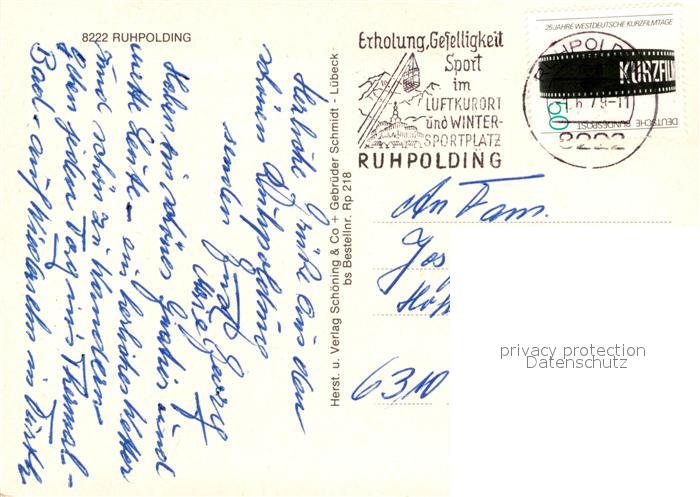 8222 RUHPOLDING
Herzliche Grüße aus dem
schönen Ruhpolding
senden
Haben ein schönes und
nette Leute - ein herrliches Wetter
und schön zu Wandern
gehen jeden Tag ins Thermal-
Bad - auf Wiedersehn in
Herst. u. Verlag Schöning & Co + Gebrüder Schmidt - Lübeck
bs Bestellnr. Rp 218
Erholung, Geselligkeit
Sport
im
LUFTKURORT
und WINTER-
SPORTPLATZ
RUHPOLDING
25 JAHRE WESTDEUTSCHE KURZFILMTAGE
KURZFILM
50
DEUTSCHE BUNDESPOST
RUHPOLD
8222
An Fam.
Jos
6310
privacy protection
Datenschutz